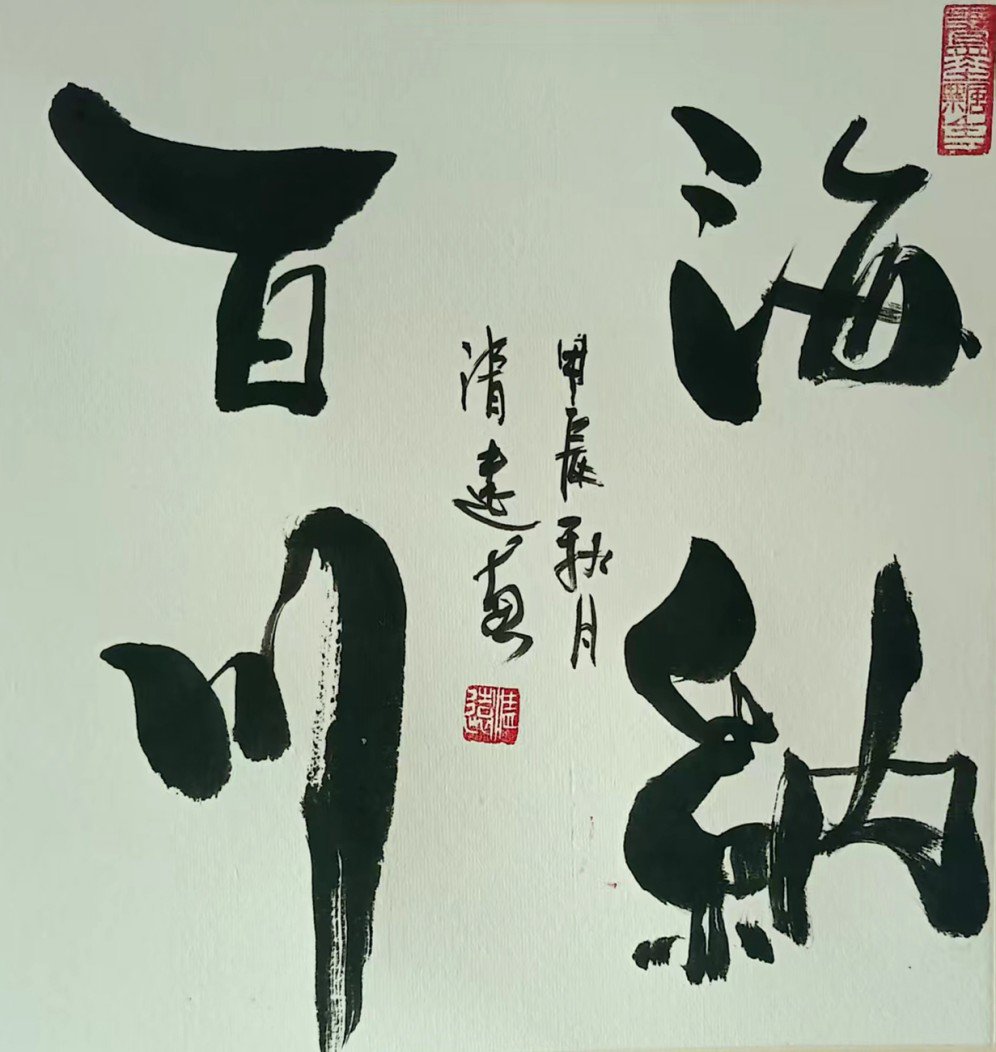 海納
百川
甲辰秋月
清遠書
清遠